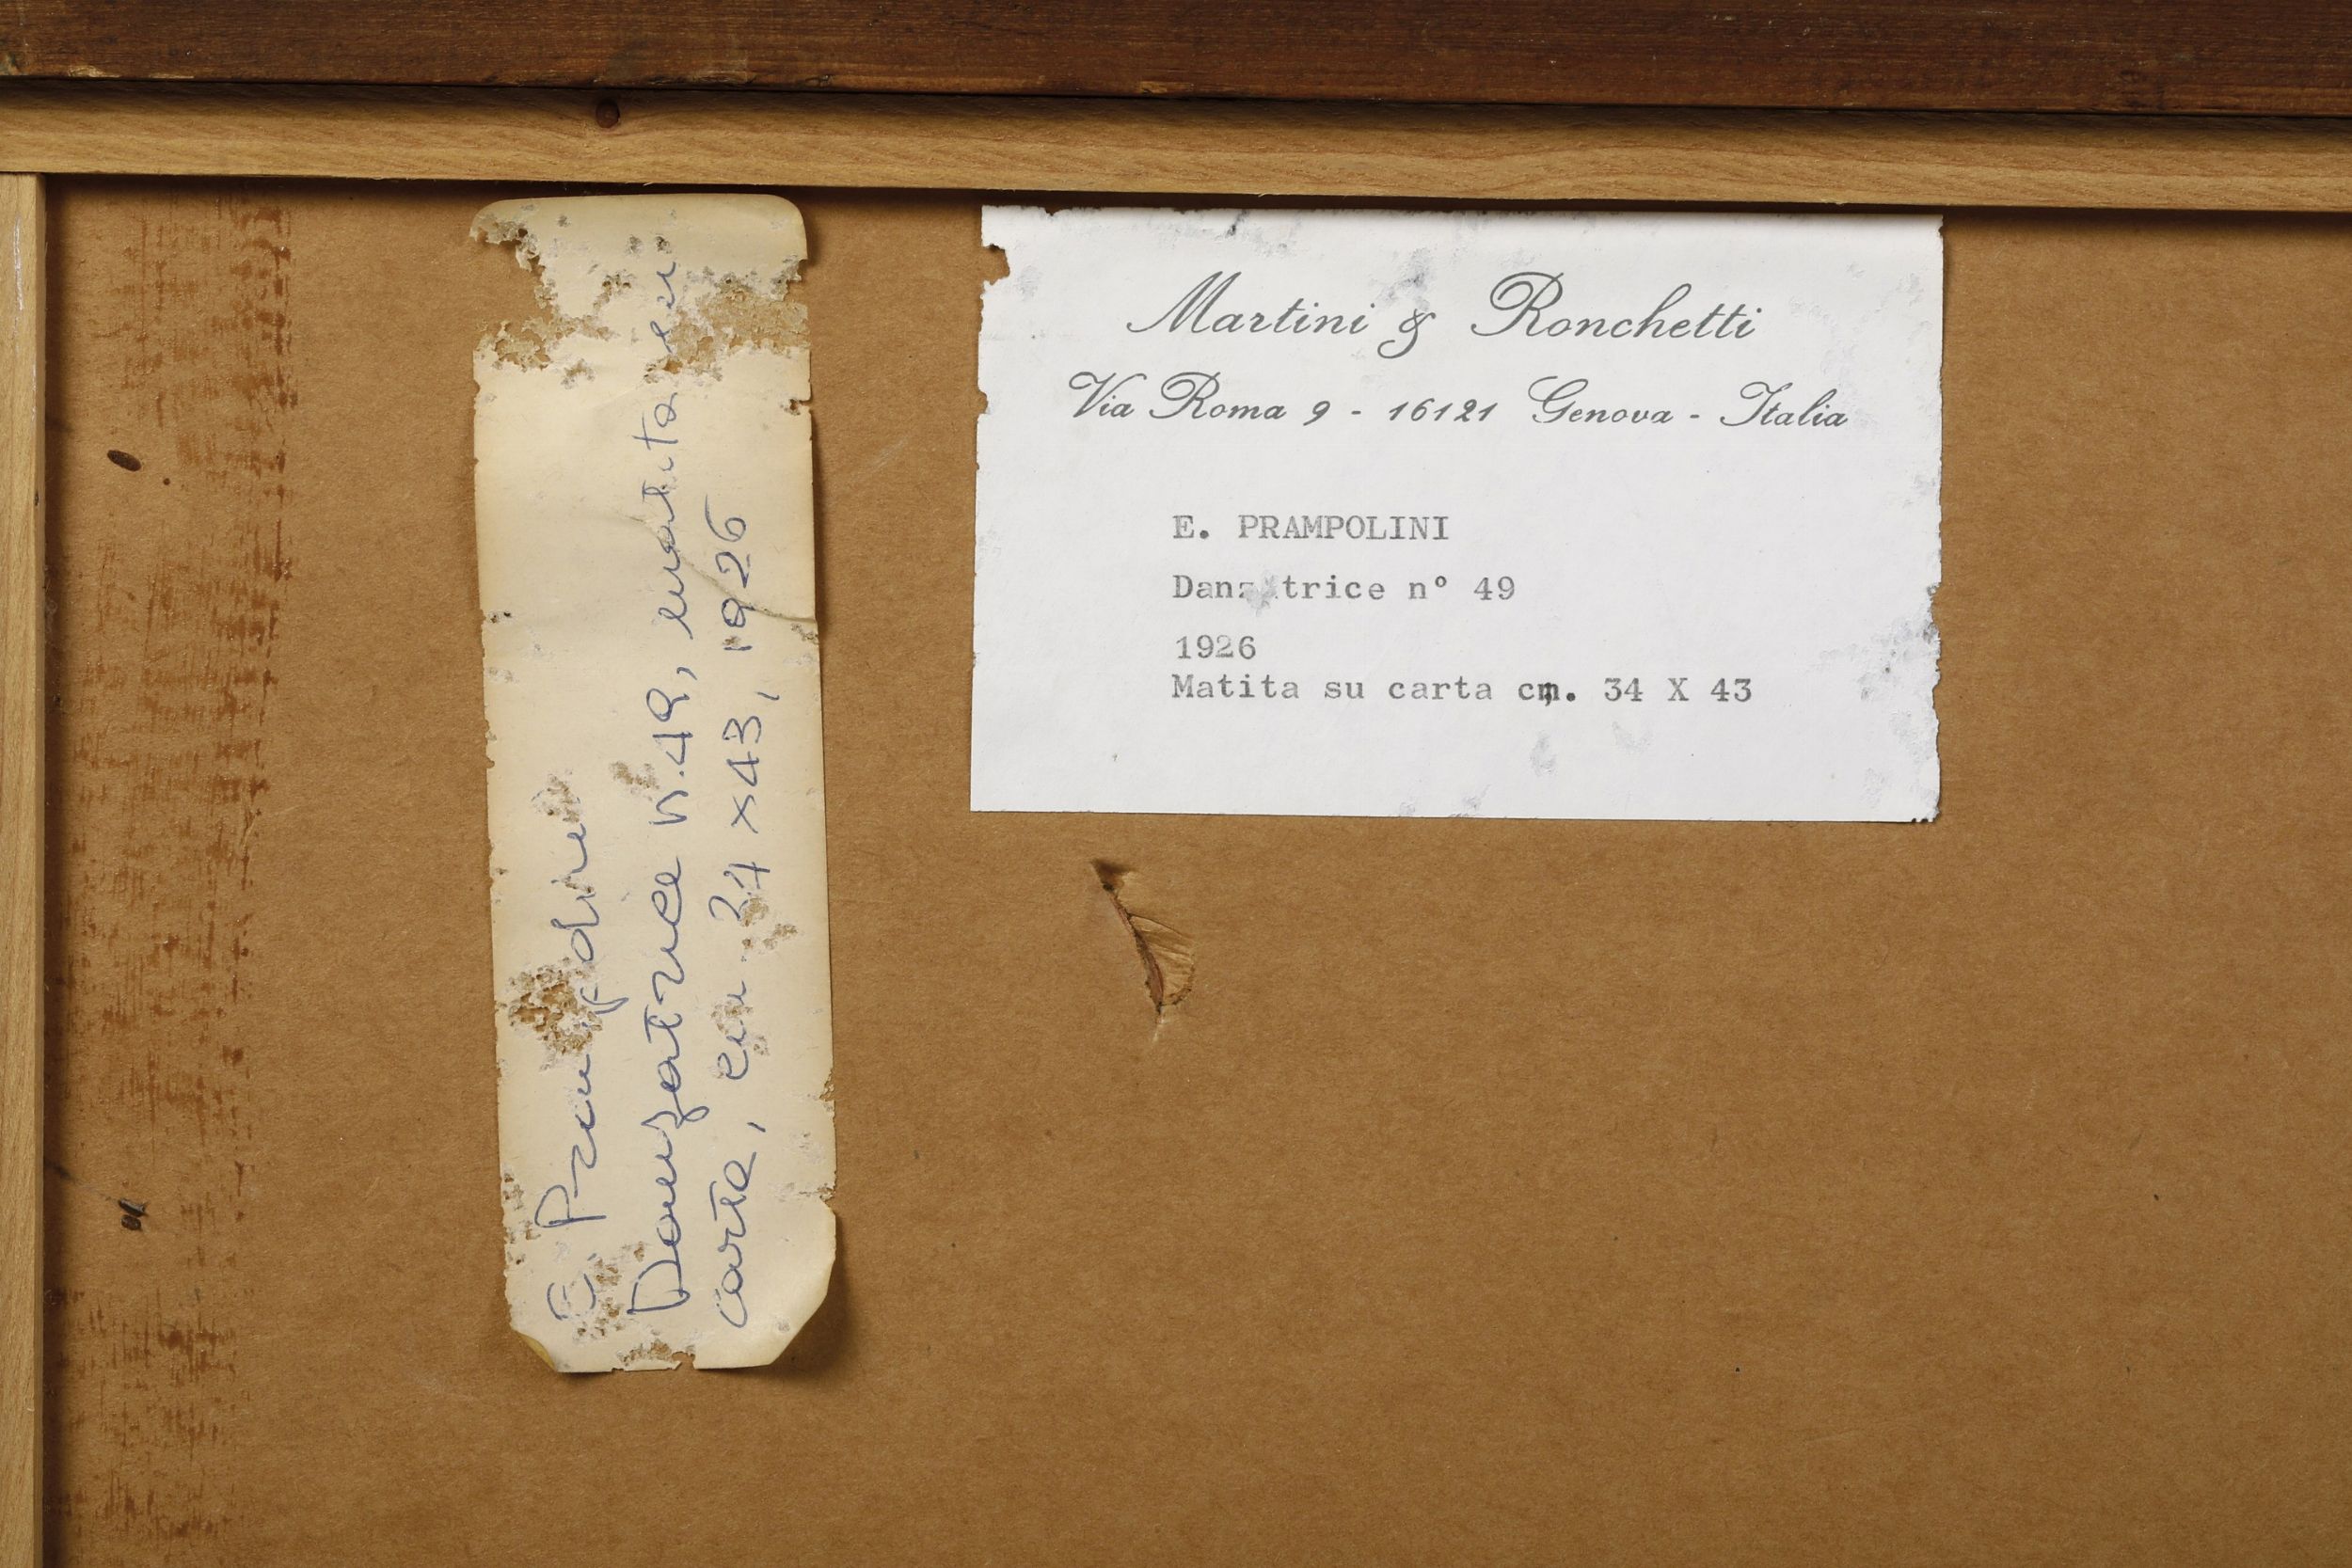 E. Prampolini
Danzatrice n. 49, matita su
carta, cm. 24 x 43, 1926
Martini & Ronchetti
Via Roma 9 - 16121 Genova - Italia
E. PRAMPOLINI
Danzatrice n° 49
1926
Matita su carta cm. 34 X 43